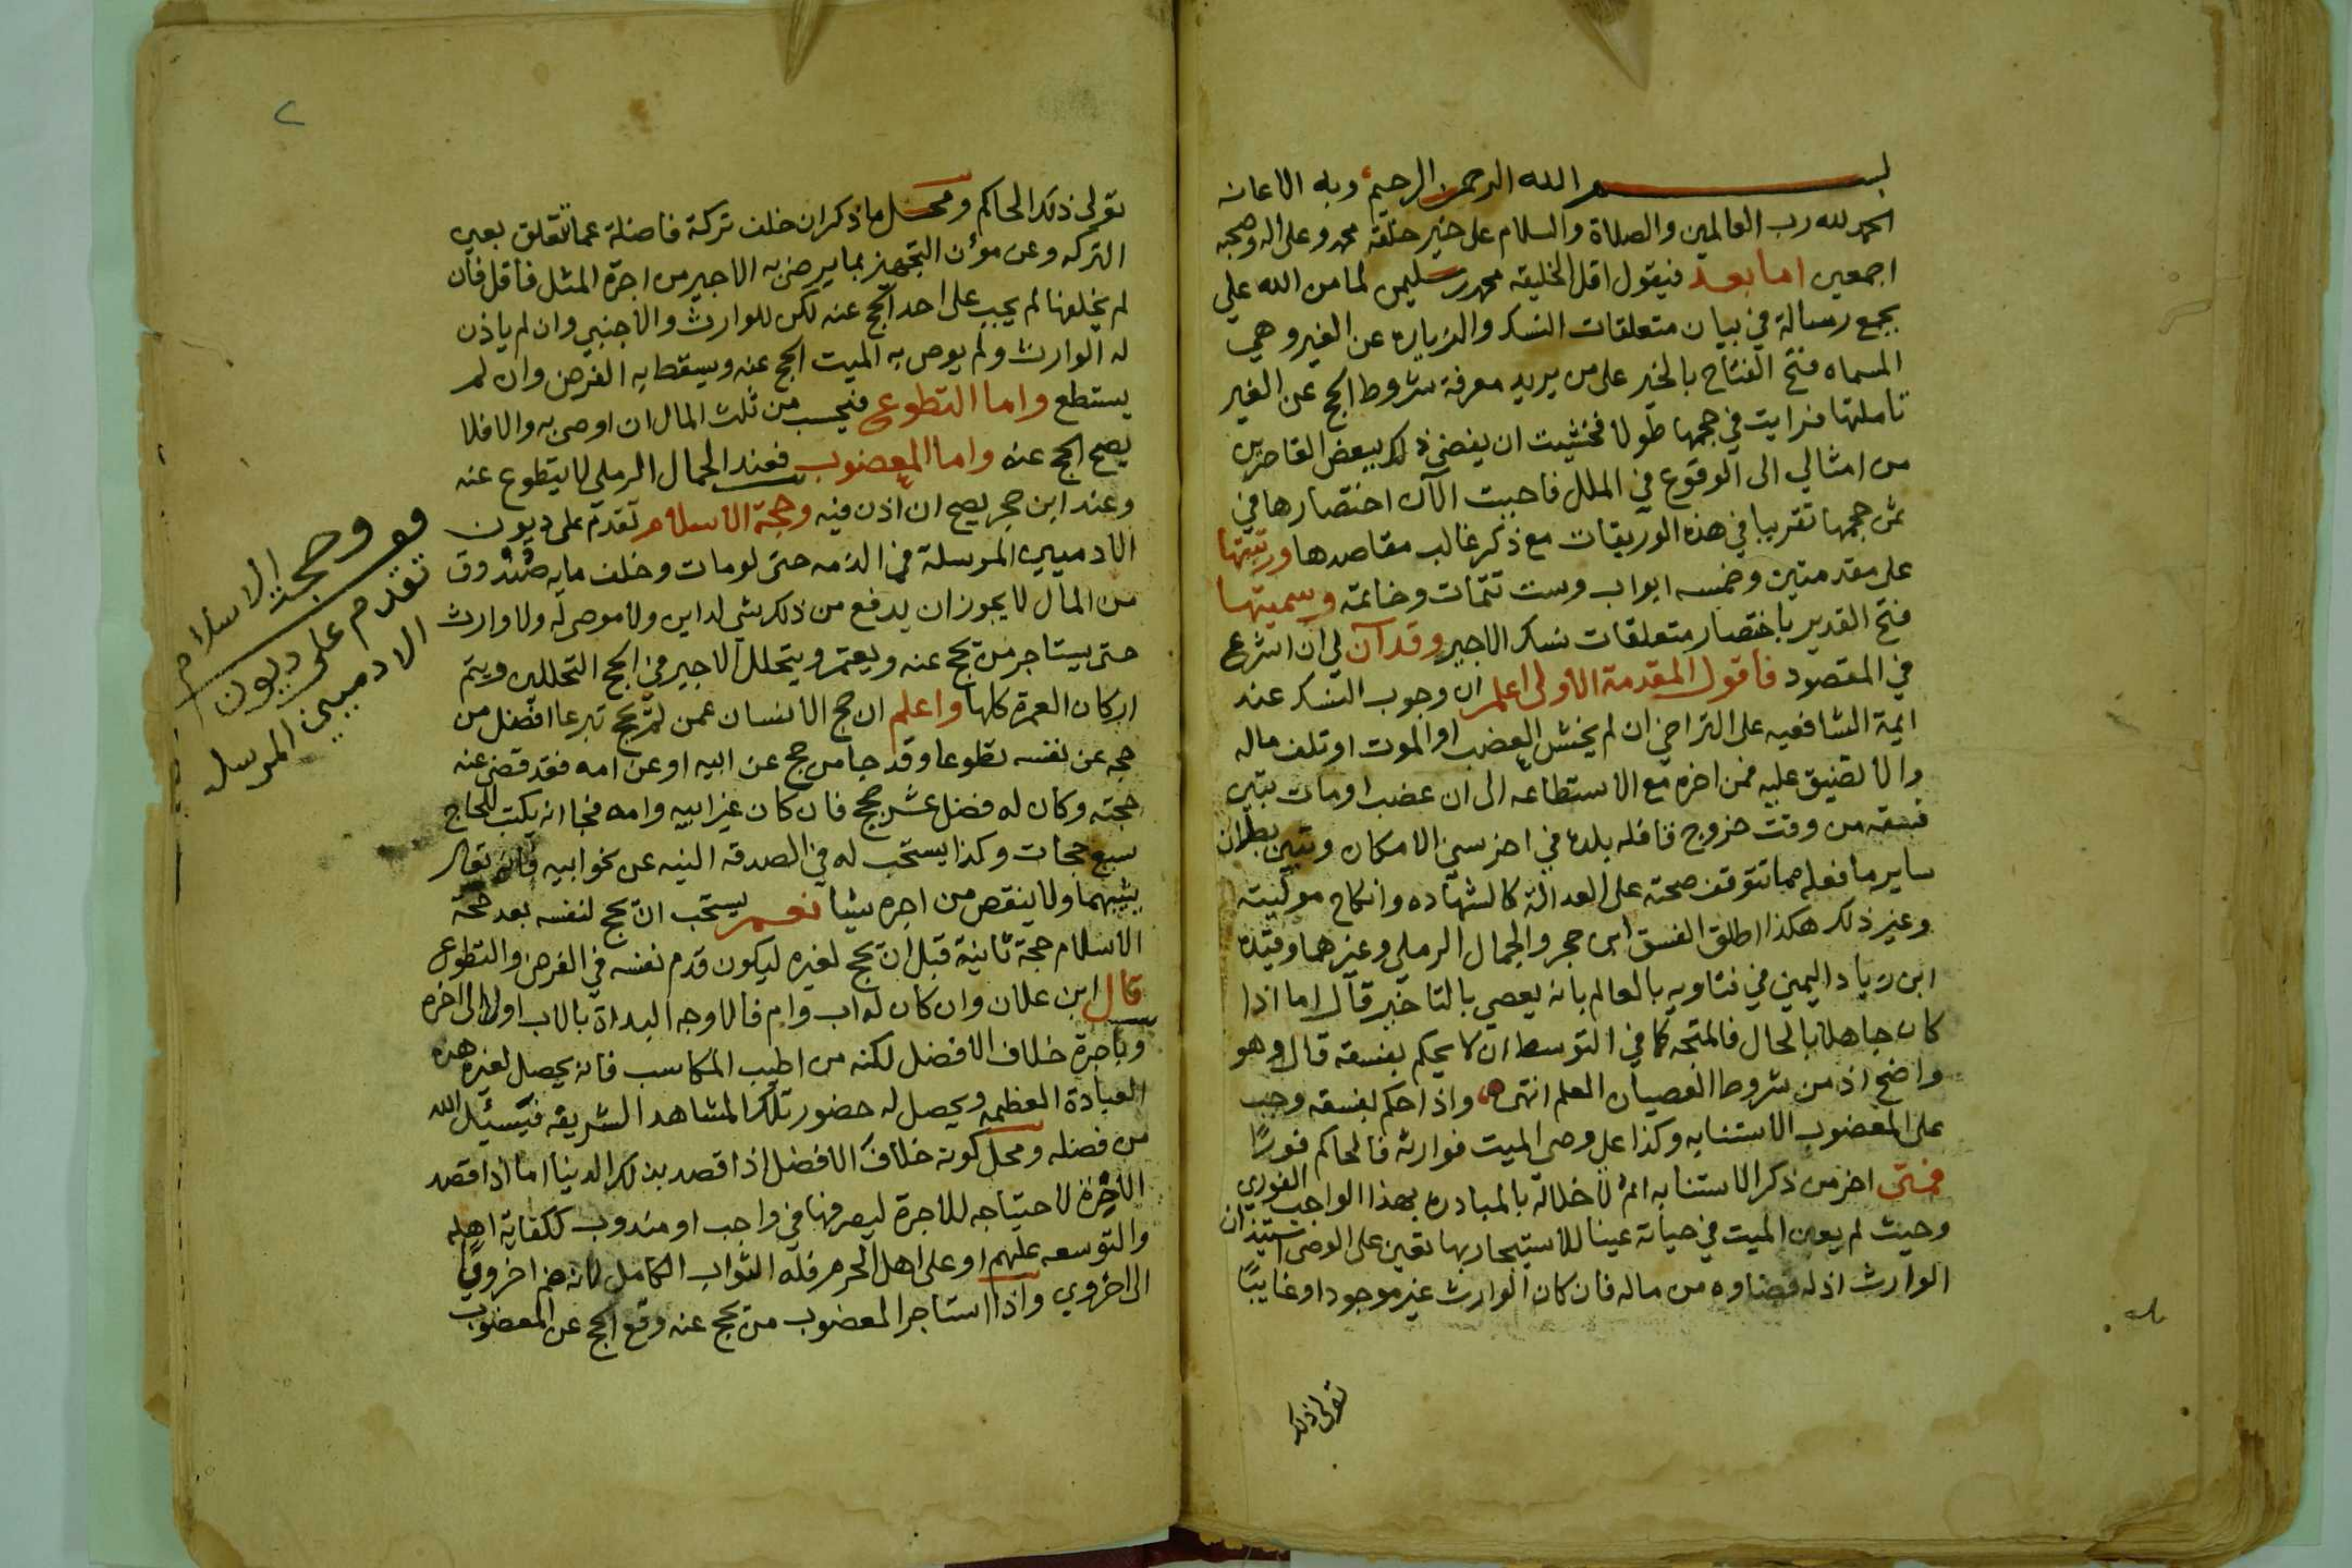 بسم الله الرحمن الرحيم وبه الاعانه
الحمد لله رب العالمين والصلاة والسلام على خير خلقه محمد وعلى اله وصحبه
اجمعين اما بعد فيقول اقل الخليقه محمد سليمن لما من الله علي
بجمع رسالة في بيان متعلقات النسك والزياره عن الغير وهي
المسماه فتح الفتاح بالخير على من يريد معرفة شروط الحج عن الغير
تاملتها فرايت في حجمها طولا فخشيت ان يفضي ذلك ببعض القاصرين
من امثالي الى الوقوع في الملل فاحببت الآن اختصارها في
ثمن حجمها تقريبا في هذه الوريقات مع ذكر غالب مقاصدها ورتبتها
على مقدمتين وخمسه ابواب وست تتمات وخاتمه وسميتها
فتح القدير باختصار متعلقات نسك الاجير وقد آن لي ان اشرع
في المقصود فاقول المقدمة الاولى اعلم ان وجوب النسك عند
ايمة الشافعيه على التراخي ان لم يخش العضب او الموت او تلف ماله
والا تضيق عليه فمن اخره مع الاستطاعه الى ان عضب او مات تبين
فسقه من وقت خروج قافله بلده في اخر سني الامكان وتبين بطلان
ساير ما فعله مما تتوقف صحته على العدالة كالشهاده وانكاح موليته
وغير ذلك هكذا اطلق الفسق ابن حجر والجمال الرملي وغيرهما وقيده
ابن زياد اليمني في فتاويه بالعالم بانه يعصي بالتاخير قال اما اذا
كان جاهلا بالحال فالمتجه كما في التوسط ان لا يحكم بفسقه قال وهو
واضح اذ من شروط العصيان العلم انتهى واذا حكم بفسقه وجب
على المعضوب الاستنابه وكذا على وصي الميت فوارثه فالحاكم فورًا
فمتى اخر من ذكر الاستنابه اثم لاخلاله بالمبادره بهذا الواجب الفوري
وحيث لم يعين الميت في حياته عينا للاستيجار بها تعين على الوصي استيذان
الوارث اذ له قضاوه من ماله فان كان الوارث غير موجود او غايبًا
تولى ذلك
تولى ذلك الحاكم ومحل ما ذكر ان خلف تركة فاضلة عما تتعلق بعين
التركه وعن مؤن التجهيز بما يرضى به الاجير من اجرة المثل فاقل فان
لم يخلفها لم يجب على احد الحج عنه لكن للوارث والاجنبي وان لم ياذن
له الوارث ولم يوص به الميت الحج عنه ويسقط به الفرض وان لم
يستطع واما التطوع فيحسب من ثلث المال ان اوصى به والا فلا
يصح الحج عنه واما المعضوب فعند الجمال الرملي لا يتطوع عنه
وعند ابن حجر يصح ان اذن فيه وحجة الاسلام تقدم على ديون
الادميين المرسلة في الذمه حتى لو مات وخلف مايه صندوق
من المال لا يجوز ان يدفع من ذلك شي لداين ولا موصى له ولا وارث
حتى يستاجر من يحج عنه ويعتمر ويتحلل الاجير في الحج التحللين ويتم
اركان العمرة كلها واعلم ان حج الانسان عمن لم يحج تبرعا افضل من
حجه عن نفسه تطوعا وقد جا من حج عن ابيه او عن امه فقد قضى عنه
حجته وكان له فضل عشر حجج فان كان غير ابيه وامه فجا انه يكتب للحاج
سبع حجات وكذا يستحب له في الصدقه النيه عن نحو ابيه فانه تعالى
يثيبهما ولا ينقص من اجره شيا نعم يستحب ان يحج لنفسه بعد حجة
الاسلام حجة ثانية قبل ان يحج لغيره ليكون قدم نفسه في الفرض والتطوع
قال ابن علان وان كان له اب وام فالاوجه البداة بالاب اولا الى اخره
وباجرة خلاف الافضل لكنه من اطيب المكاسب فانه يحصل لغيره هذه
العبادة العظيمه ويحصل له حضور تلك المشاهد الشريفه فيسئل الله
من فضله ومحل كونه خلاف الافضل اذا قصد بذلك الدنيا اما اذا قصد
الاخرة لاحتياجه للاجرة ليصرفها في واجب او مندوب ككفاية اهله
والتوسعه عليهم او على اهل الحرم فله الثواب الكامل لانه ضم اخرويًا
الى اخروي واذا استاجر المعضوب من يحج عنه وقع الحج عن المعضوب
وحجة الاسلام
تقدم على ديون
الادميين المرسله